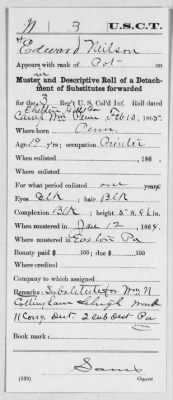 N 3 U.S.C.T.
Edward Nilson
Appears with rank of Pvt on
Muster and Descriptive Roll of a Detach-
ment of Substitutes forwarded
for the 3 Reg't U. S. Col'd Inf. Roll dated
Camp Wm Penn Feb 10, 1865.
Where born Penn.
Age 19 y'rs; occupation
When enlisted , 186 .
Where enlisted
For what period enlisted one years.
Eyes Blk; hair Blk
Complexion Blk; height 5 ft. in.
When mustered in Jan 12, 186
Where mustered in Easton Pa
Bounty paid $ 100; due $ 100
Where credited
Company to which assigned
Remarks: Substitute for Wm N
Lehigh
11 Cong Dist 2 sub Dist Pa
Book mark:
(339) Copyist.